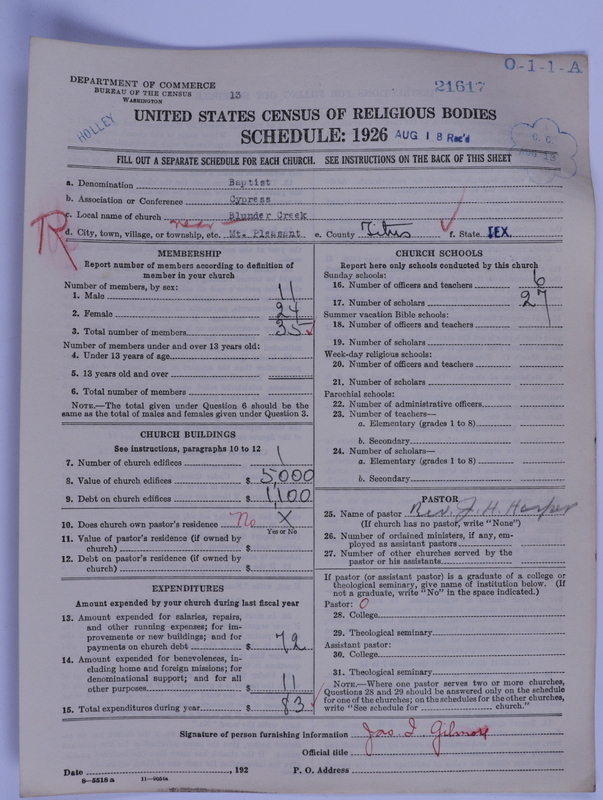 O-1-1-A
DEPARTMENT OF COMMERCE
BUREAU OF THE CENSUS
WASHINGTON
13
21617
HOLLEY
UNITED STATES CENSUS OF RELIGIOUS BODIES
SCHEDULE: 1926 AUG 18 Rec'd
C. C.
AUG 18
FILL OUT A SEPARATE SCHEDULE FOR EACH CHURCH. SEE INSTRUCTIONS ON THE BACK OF THIS SHEET
a. Denomination Baptist
b. Association or Conference Cypress
c. Local name of church Blunder Creek
near
TR
d. City, town, village, or township, etc. Mt. Pleasant e. County Titus f. State TEX.
MEMBERSHIP
Report number of members according to definition of
member in your church
Number of members, by sex:
1. Male 11
2. Female 24
3. Total number of members 35
Number of members under and over 13 years old:
4. Under 13 years of age
5. 13 years old and over
6. Total number of members
NOTE.—The total given under Question 6 should be the
same as the total of males and females given under Question 3.
CHURCH BUILDINGS
See instructions, paragraphs 10 to 12
7. Number of church edifices 1
8. Value of church edifices $ 5,000
9. Debt on church edifices $ 1,100
10. Does church own pastor's residence No X
Yes or No
11. Value of pastor's residence (if owned by
church) $
12. Debt on pastor's residence (if owned by
church) $
EXPENDITURES
Amount expended by your church during last fiscal year
13. Amount expended for salaries, repairs,
and other running expenses; for im-
provements or new buildings; and for
payments on church debt $ 72
14. Amount expended for benevolences, in-
cluding home and foreign missions; for
denominational support; and for all
other purposes $ 11
15. Total expenditures during year $ 83
CHURCH SCHOOLS
Report here only schools conducted by this church
Sunday schools:
16. Number of officers and teachers 6
17. Number of scholars 27
Summer vacation Bible schools:
18. Number of officers and teachers
19. Number of scholars
Week-day religious schools:
20. Number of officers and teachers
21. Number of scholars
Parochial schools:
22. Number of administrative officers
23. Number of teachers—
a. Elementary (grades 1 to 8)
b. Secondary
24. Number of scholars—
a. Elementary (grades 1 to 8)
b. Secondary
PASTOR
25. Name of pastor Rev. J. H. Harper
(If church has no pastor, write "None")
26. Number of ordained ministers, if any, em-
ployed as assistant pastors
27. Number of other churches served by the
pastor or his assistants
If pastor (or assistant pastor) is a graduate of a college or
theological seminary, give name of institution below. (If
not a graduate, write "No" in the space indicated.)
Pastor: 0
28. College
29. Theological seminary
Assistant pastor:
30. College
31. Theological seminary
NOTE.—Where one pastor serves two or more churches,
Questions 28 and 29 should be answered only on the schedule
for one of the churches; on the schedules for the other churches,
write "See schedule for church."
Signature of person furnishing information Jas. I. Gilmore
Official title
Date , 192 P. O. Address
8—5518 a 11—9054a